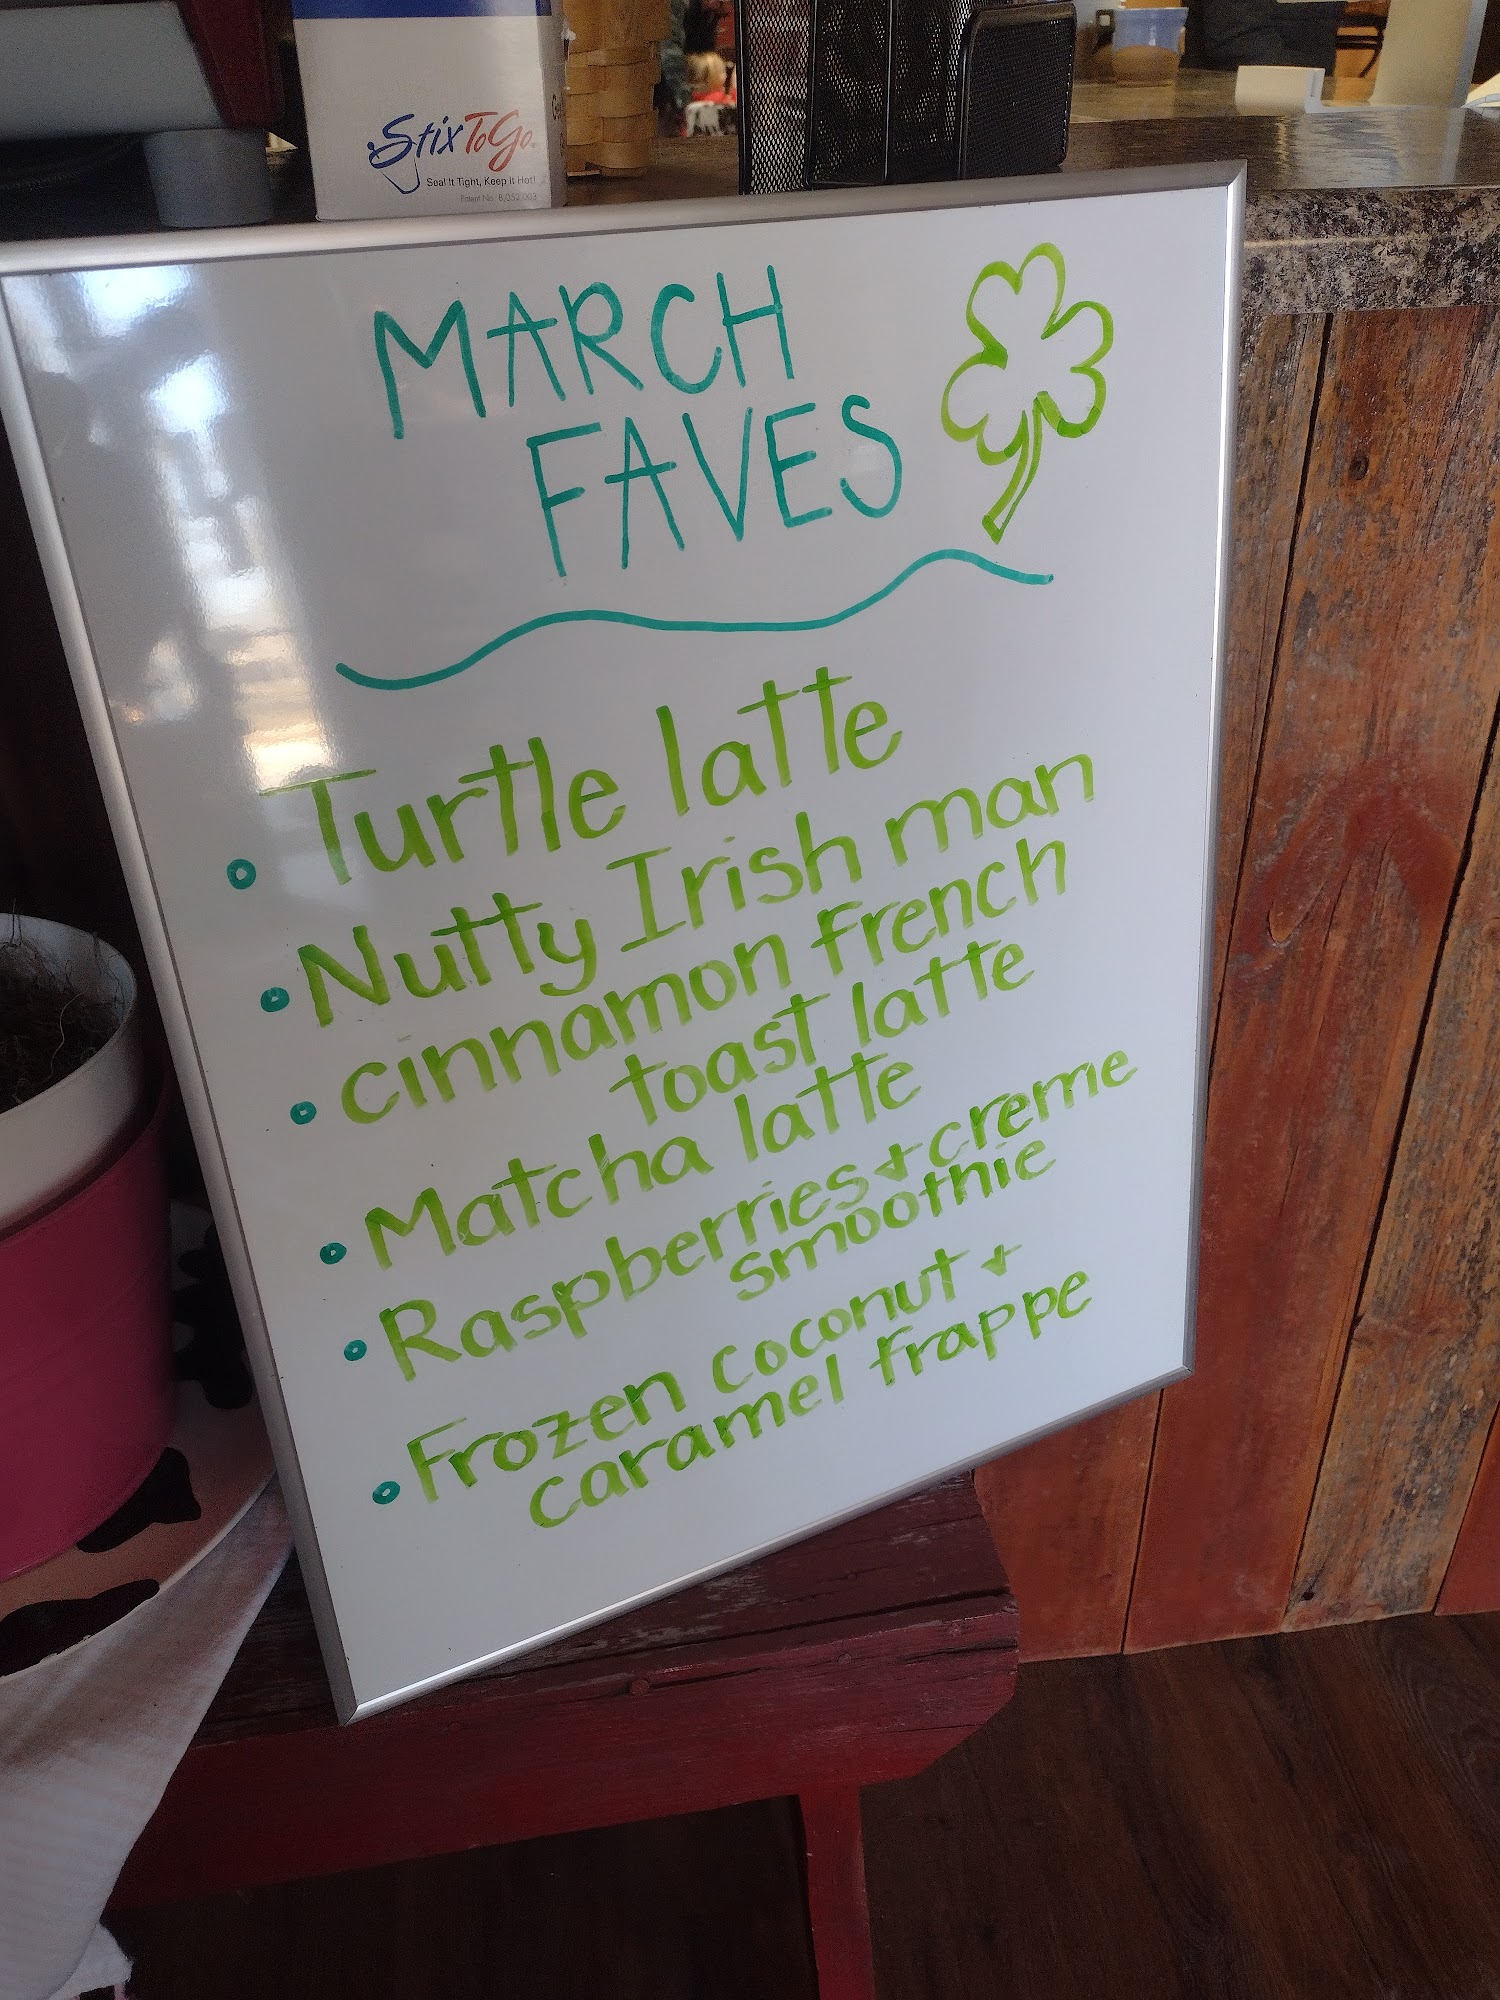 StixToGo.
Seal It Tight, Keep It Hot!
Patent No. 8,052,003
MARCH
FAVES
Turtle latte
Nutty Irish man
cinnamon french
toast latte
Matcha latte
Raspberries + creme
smoothie
Frozen coconut +
caramel frappe